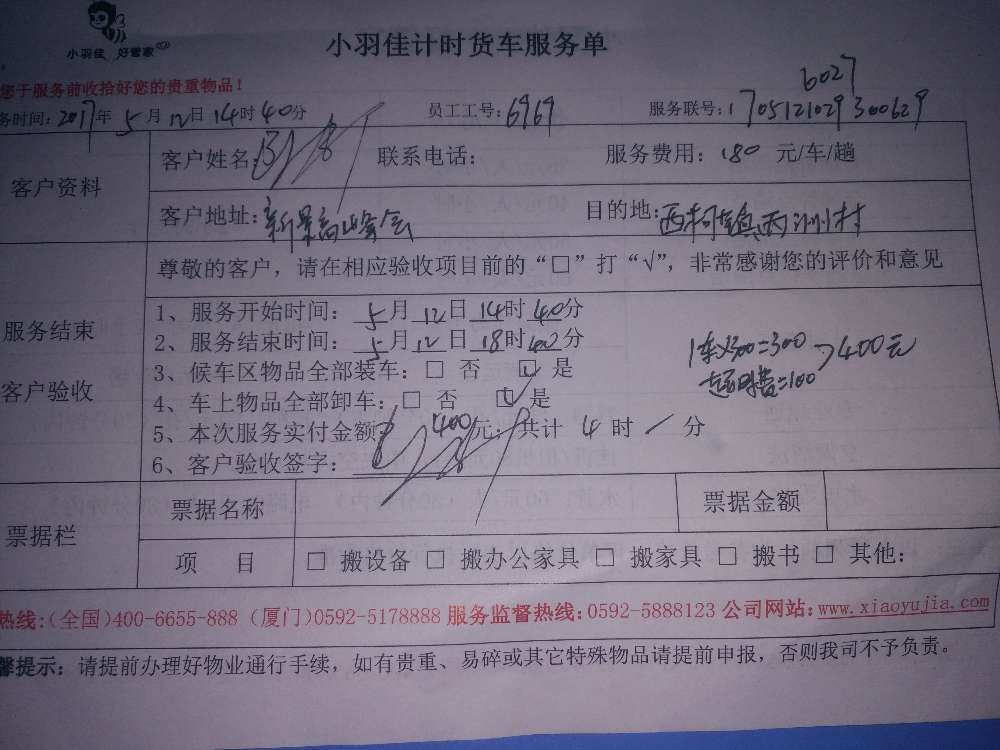 小羽佳 好管家
小羽佳计时货车服务单
您于服务前收拾好您的贵重物品!
6027
务时间:2017年5月12日14时40分 员工工号:6969 服务联号:1705121029300629
客户资料
客户姓名: 联系电话: 服务费用:180 元/车/趟
客户地址:新景高峰会 目的地:西柯镇西洲村
服务结束
客户验收
尊敬的客户,请在相应验收项目前的“□”打“√”,非常感谢您的评价和意见
1、服务开始时间: 5月12日14时40分
2、服务结束时间: 5月12日18时40分
3、候车区物品全部装车:□ 否 □ 是
4、车上物品全部卸车:□ 否 □ 是
5、本次服务实付金额 400元; 共计 4 时 / 分
6、客户验收签字:
=300
超时费=100
400元
票据栏
票据名称 票据金额
项 目 □ 搬设备 □ 搬办公家具 □ 搬家具 □ 搬书 □ 其他:
热线:(全国)400-6655-888 (厦门)0592-5178888 服务监督热线:0592-5888123 公司网站:www.xiaoyujia.com
馨提示:请提前办理好物业通行手续,如有贵重、易碎或其它特殊物品请提前申报,否则我司不予负责。